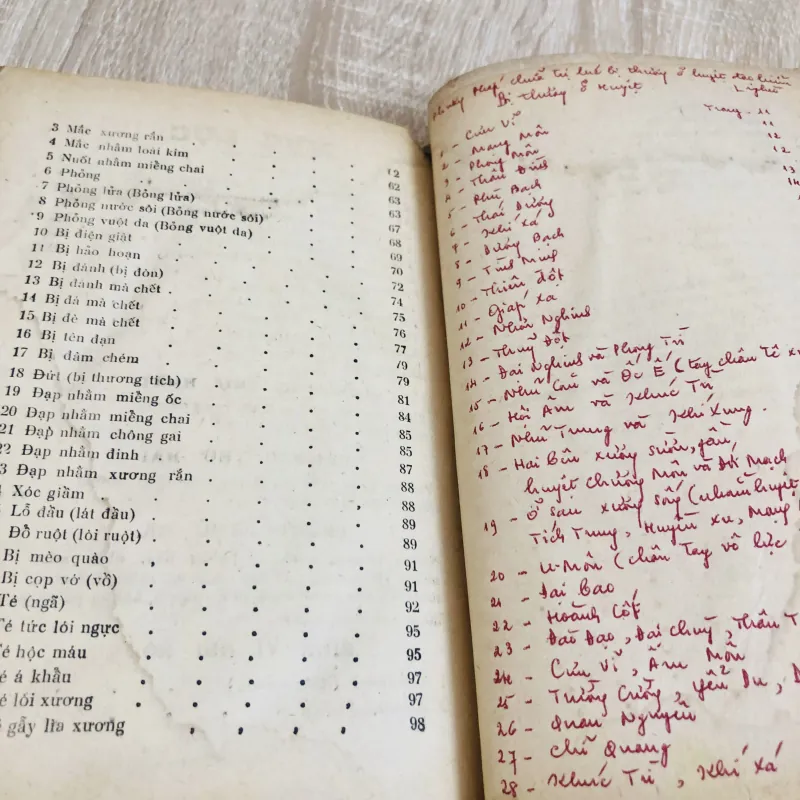 3 Mắc xương rắn
4 Mắc nhằm loài kim
5 Nuốt nhằm miếng chai 12
6 Phỏng 62
7 Phỏng lửa (Bỏng lửa) 63
8 Phỏng nước sôi (Bỏng nước sôi) 63
9 Phỏng vuột da (Bỏng vuột da) 67
10 Bị điện giật 68
11 Bị hảo hoạn 69
12 Bị đánh (bị đòn) 70
13 Bị đánh mà chết 72
14 Bị đá mà chết 74
15 Bị đè mà chết 75
16 Bị tên đạn 76
17 Bị đâm chém 77
18 Đứt (bị thương tích) 79
19 Đạp nhằm miếng ốc 81
20 Đạp nhằm miếng chai 84
21 Đạp nhằm chông gai 85
22 Đạp nhằm đinh 85
3 Đạp nhằm xương rắn 87
4 Xóc giầm 88
Lỗ đầu (lát đầu) 88
Đồ ruột (lòi ruột) 89
Bị mèo quào 91
Bị cọp vớ (vồ) 91
Té (ngã) 92
Té tức lói ngực 95
Té hộc máu 95
é á khẩu 97
é lói xương 97
é gẫy lìa xương 98
Phương pháp chữa trị lúc bị thương ở huyệt
Bị Thương ở Huyệt
Trang - 11
1 - Cưu Vĩ 11
2 - Mạng Môn 12
3 - Phong Môn 12
4 - Thần Đình 13
5 - Phù Bạch 14
6 - Thái Dương
7 - Khí Xá
8 - Dương Bạch
9 - Tình Minh
10 - Thiên đột
11 - Giáp Xa
12 - Nhơn Nghinh
13 - Thuỷ Đột
14 - Đại Nghinh và Phong Trì
15 - Nhũ Căn và Ốc Ế (tay chân tê
16 - Hội Âm và Khúc Trì
17 - Nhũ Trung và Khí Xung.
18 - Hai Bên xương sườn, gần
huyệt chương Môn và Đới Mạch
19 - Ở sau xương sống (nhằm huyệt
Tích Trung, Huyền Xu, Mạng
20 - U-Môn (chân Tay vô lực
21 - Đại Bao
22 - Hoành Cốt
23 - Đào Đạo, Đại chuỳ, Thân T
24 - Cưu Vĩ, Âm Môn
25 - Trường Cường, yêu Du,
26 - Quan Nguyên
27 - Chí Quang
28 - Khúc Trì, Khí Xá